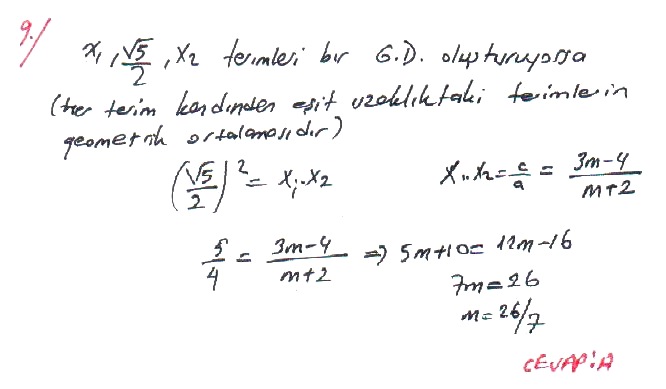 9./ x₁, √5/2, x₂ terimleri bir G.D. oluşturuyorsa
(her terim kendinden eşit uzaklıktaki terimlerin
geometrik ortalamasıdır)
(√5/2)² = x₁.x₂   x₁.x₂ = c/a = 3m-4/m+2
5/4 = 3m-4/m+2 ⇒ 5m+10 = 12m-16
7m = 26
m = 26/7
CEVAP:A